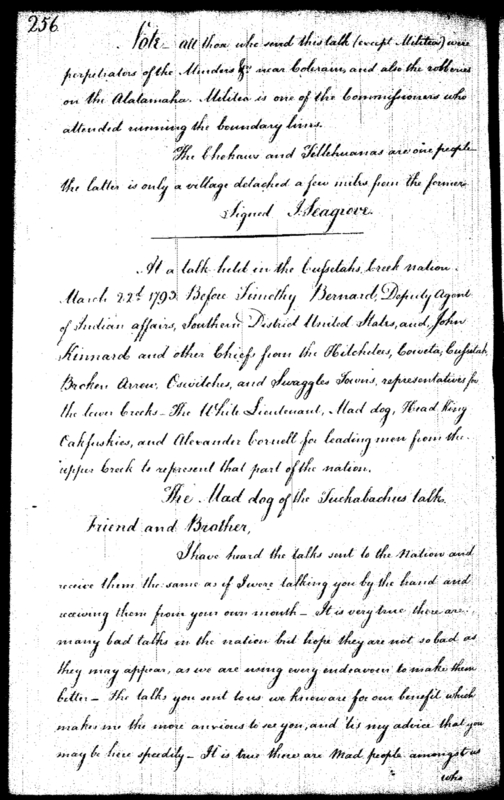 256
Note - all those who send this talk (except Militea) were
perpetrators of the Murders &c near Colerain, and also the robberies
on the Alatamaha. Militea is one of the Commissioners who
attended running the boundary lines.
The Chehaws and Tellehuanas are one people
the latter is only a village detached a few miles from the former
Signed J. Seagrove
At a talk held in the Cussetahs, Creek nation
March 22d 1793. Before Timothy Bernard, Deputy Agent
of Indian affairs, Southern District United States, and, John
Kinnard and other Chiefs from the Hitchetees, Coweta, Cussetah,
Broken Arrow, Oswitches, and Swaggles Towns, representatives for
the lower Creeks - The White Lieutenant, Mad dog, Head King
Oakfuskies, and Alexander Cornell for leading men from the
upper Creek to represent that part of the nation.
The Mad dog of the Tuckabachees talk.
Friend and Brother,
I have heard the talks sent to the Nation and
receive them the same as if I were talking you by the hand and
receiving them from your own mouth - It is very true there are
many bad talks in the nation but hope they are not so bad as
they may appear, as we are using every endeavour to make them
better - The talks you sent to us we know are for our benefit which
makes me the more anxious to see you, and 'tis my advice that you
may be here speedily - It is true there are Mad people amongst us
who